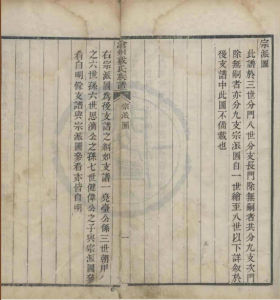 宗派圖
此譜於三世分門八世分支長門除無嗣者共分九支次門
除無嗣者亦分九支宗派圖自一世繪至八世以下詳敘於
後支譜中此圖不備載也
氏族譜
宗派圖
一
右宗派圖爲後支譜之綱如支譜一堯臺公係三世朝
之六世孫六世思公之孫七世健偉公之子與宗派圖參
看自明餘支譜與宗派圖參看亦皆自明